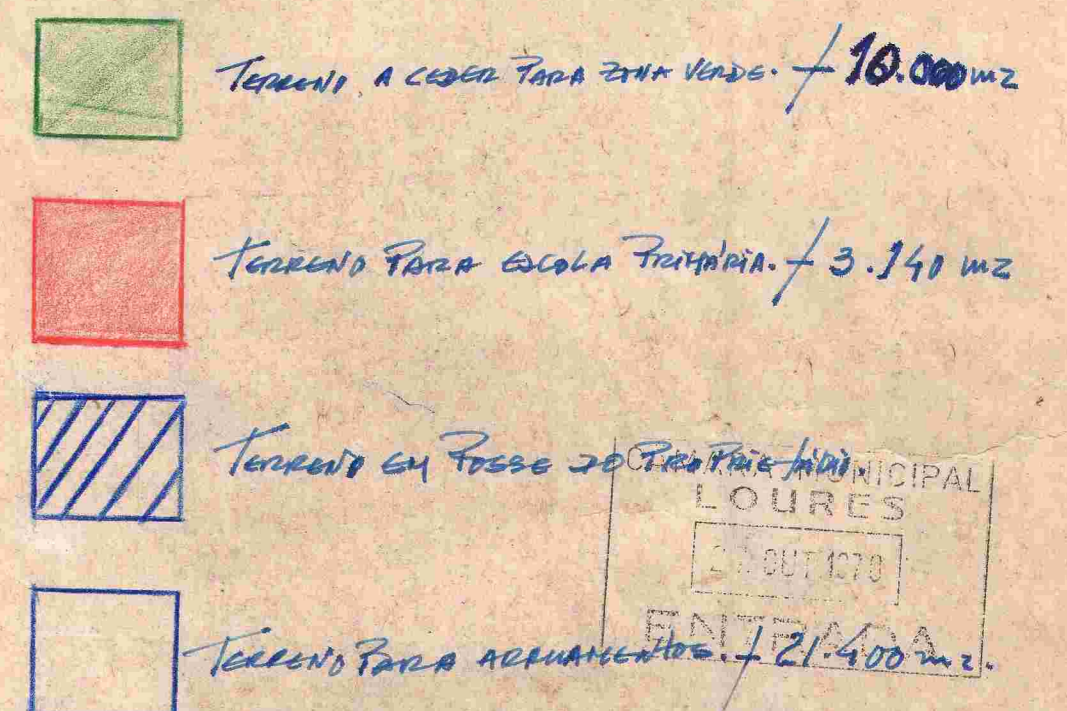 TERRENO A CEDER PARA ZONA VERDE. / 10.000 m2
TERRENO PARA ESCOLA PRIMÁRIA. / 3.140 m2
TERRENO EM POSSE DO PROPRIETÁRIO.
CÂMARA MUNICIPAL
LOURES
OUT 1970
ENTRADA
TERRENO PARA ARRUAMENTOS. / 21.400 m2.